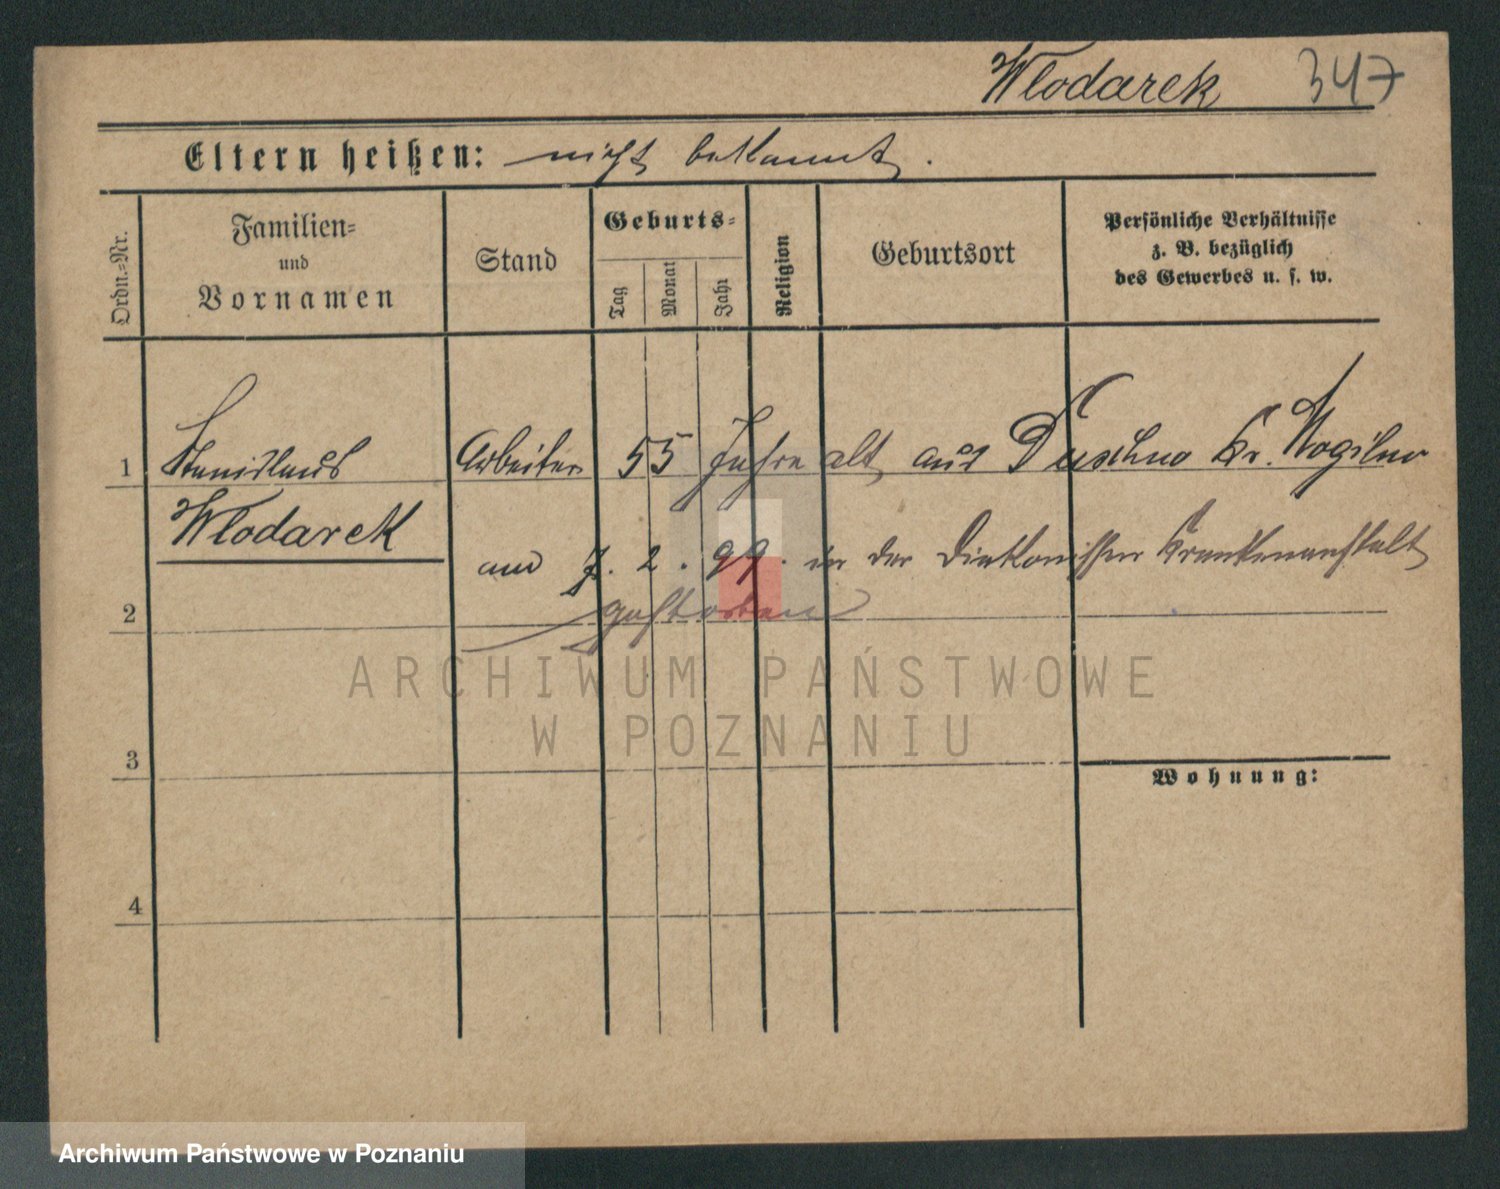 Wlodarek 347
Eltern heißen: nicht bekannt.
Ordn.-Nr.
Familien-
und
Vornamen
Stand
Geburts-
Tag
Monat
Jahr
Religion
Geburtsort
Persönliche Verhältnisse
z. B. bezüglich
des Gewerbes u. s. w.
1 Stanislaus Arbeiter 55 Jahre alt, aus Duschno Kr. Mogilno
Wlodarek
am 7. 2. 99. in der Diakonissen Krankenanstalt
2 gestorben
ARCHIWUM PAŃSTWOWE
W POZNANIU
3
Wohnung:
4
Archiwum Państwowe w Poznaniu